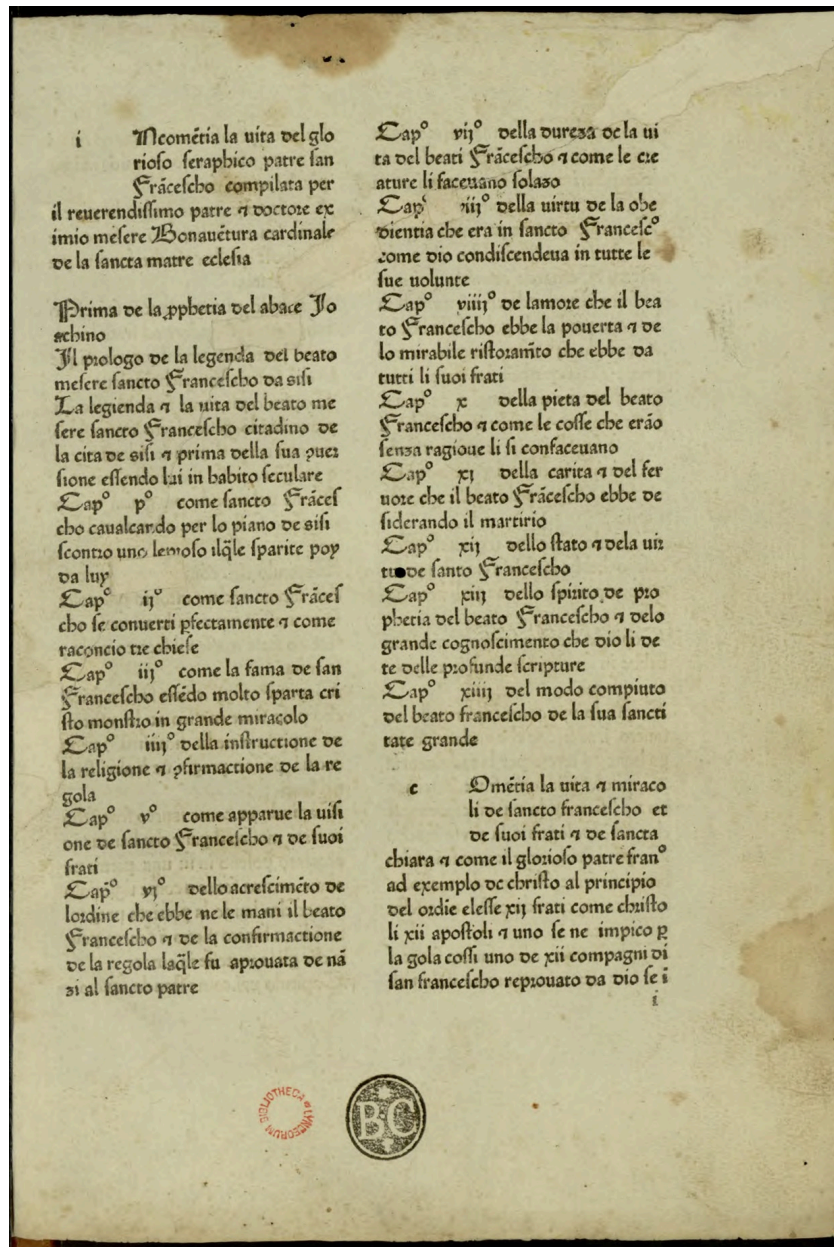 i Ncomẽtia la uita del glo
rioso seraphico patre san
Frãcescho compilata per
il reuerendissimo patre ⁊ doctore ex
imio mesere Bonauẽtura cardinale
de la sancta matre eclesia
Prima de la ꝓphetia del abate Jo
achino
Il prologo de la legenda del beato
mesere sancto Francescho da sisi
La legienda ⁊ la uita del beato me
sere sancto Francescho citadino de
la cita de sisi ⁊ prima della sua ꝯuer
sione essendo lui in habito seculare
Cap° p° come sancto Frãces
cho caualcando per lo piano de sisi
scontro uno leproso ilq̃le sparite poy
da luy
Cap° ij° come sancto Frãces
cho se conuerti ꝑfectamente ⁊ come
raconcio tre chiese
Cap° iij° come la fama de san
Francescho essẽdo molto sparta cri
sto monstro in grande miracolo
Cap° iiij° della instructione de
la religione ⁊ ꝯfirmactione de la re
gola
Cap° v° come apparue la uisi
one de sancto Francescho ⁊ de suoi
frati
Cap° vj° dello acrescimẽto de
lordine che ebbe ne le mani il beato
Francescho ⁊ de la confirmactione
de la regola laq̃le fu aprouata de nã
zi al sancto patre
Cap° vij° della dureza de la ui
ta del beati Frãcescho ⁊ come le cre
ature li faceuano solazo
Cap° viij° della uirtu de la obe
dientia che era in sancto Francesc°
come dio condiscendeua in tutte le
sue uolunte
Cap° viiij° de lamore che il bea
to Francescho ebbe la pouerta ⁊ de
lo mirabile ristoram̃to che ebbe da
tutti li suoi frati
Cap° x della pieta del beato
Francescho ⁊ come le cosse che erão
senza ragioue li si confaceuano
Cap° xj della carita ⁊ del fer
uore che il beato Frãcescho ebbe de
siderando il martirio
Cap° xij dello stato ⁊ dela uir
tu de santo Francescho
Cap° xiij dello spirito de pro
phetia del beato Francescho ⁊ delo
grande cognoscimento che dio li de
te delle profunde scripture
Cap° xiiij del modo compiuto
del beato francescho de la sua sancti
tate grande
c Omẽtia la uita ⁊ miraco
li de sancto francescho et
de suoi frati ⁊ de sancta
chiara ⁊ come il glorioso patre fran°
ad exemplo de christo al principio
del ordie elesse xij frati come christo
li xii apostoli ⁊ uno se ne impico ꝑ
la gola cossi uno de xii compagni di
san francescho reprouato da dio se ĩ
i
BIBLIOTHECA LYNCEORUM
BC